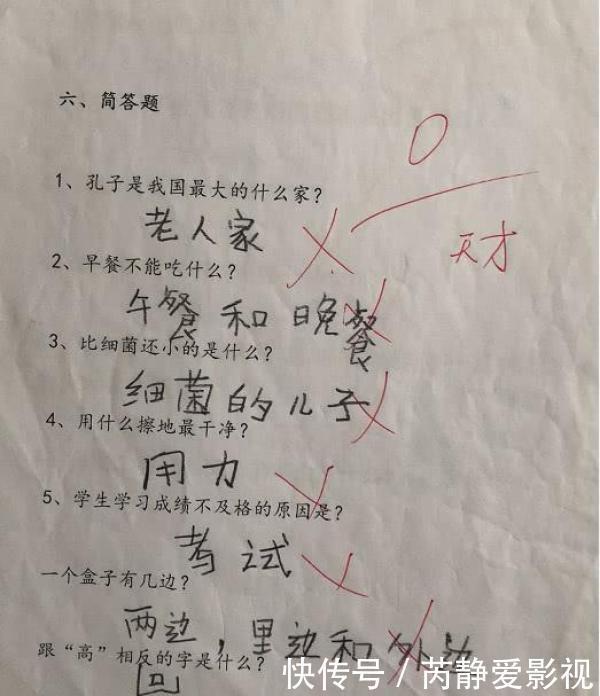 六、简答题
0
天才
1、孔子是我国最大的什么家?
老人家
2、早餐不能吃什么?
午餐和晚餐
3、比细菌还小的是什么?
细菌的儿子
4、用什么擦地最干净?
用力
5、学生学习成绩不及格的原因是?
考试
一个盒子有几边?
两边，里边和外边
跟“高”相反的字是什么?
快传号/芮静爱影视